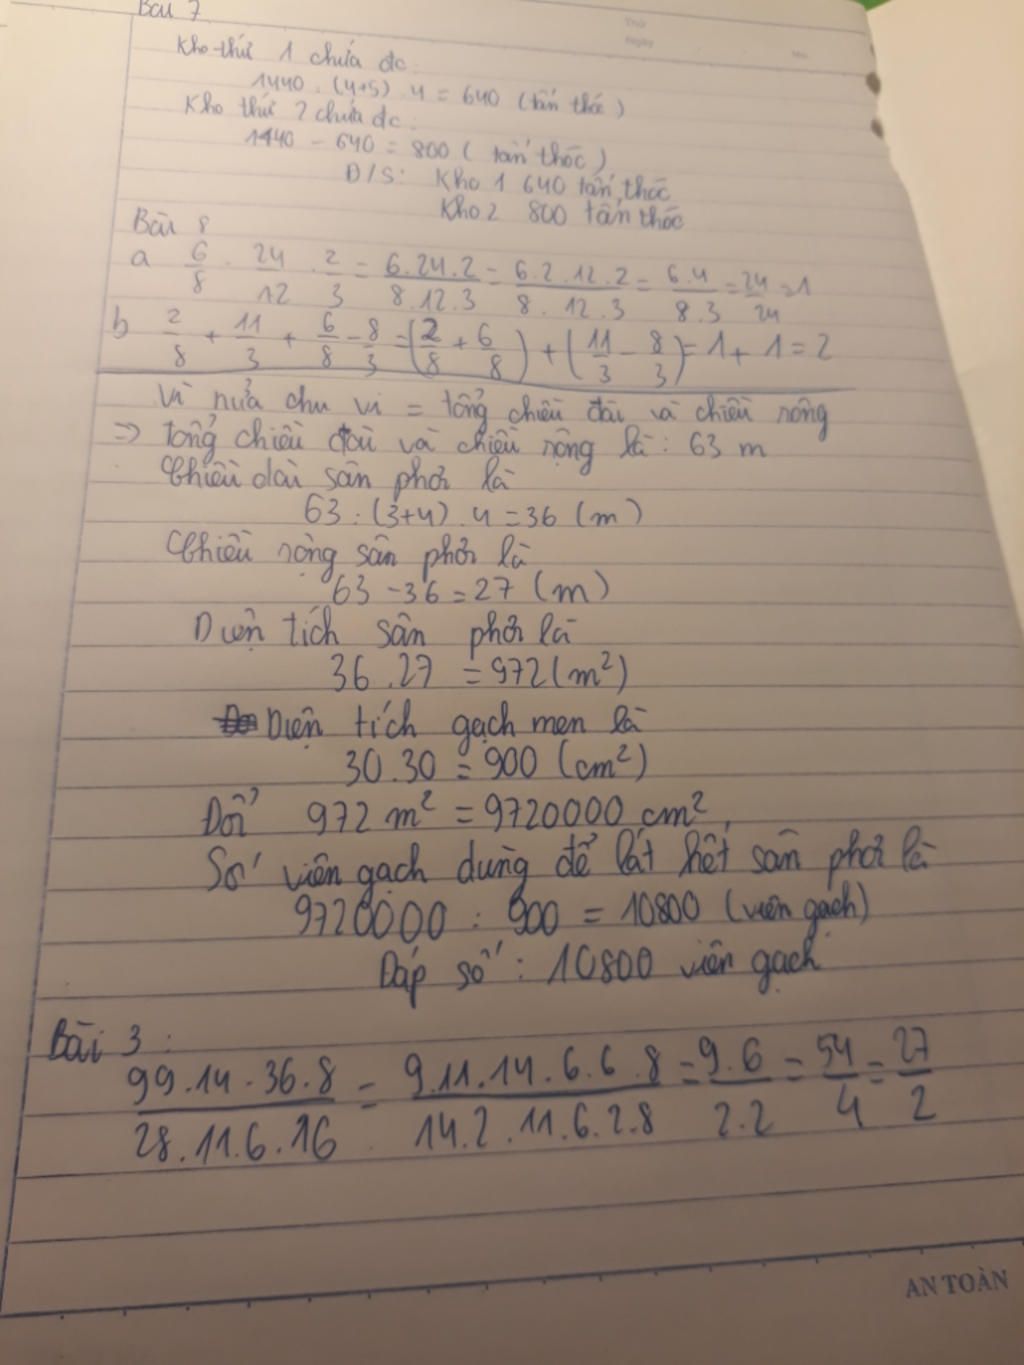 Bài 7
Thứ
Ngày
No.
Kho thứ 1 chứa đc:
1440 : (4+5) . 4 = 640 (tấn thóc)
Kho thứ 2 chứa đc:
1440 - 640 = 800 (tấn thóc)
Đ/S: Kho 1 640 tấn thóc
Kho 2 800 tấn thóc
Bài 8
a 6/8 . 24/12 . 2/3 = 6.24.2/8.12.3 = 6.2.12.2/8.12.3 = 6.4/8.3 = 24/24 = 1
b 2/8 + 11/3 + 6/8 - 8/3 = (2/8 + 6/8) + (11/3 - 8/3) = 1 + 1 = 2
Vì nửa chu vi = tổng chiều dài và chiều rộng
=> Tổng chiều dài và chiều rộng là: 63 m
Chiều dài sân phơi là
63 : (3+4) . 4 = 36 (m)
Chiều rộng sân phơi là
63 - 36 = 27 (m)
Diện tích sân phơi là
36 . 27 = 972 (m²)
Diện tích gạch men là
30 . 30 = 900 (cm²)
Đổi 972 m² = 9720000 cm²
Số viên gạch dùng để lát hết sân phơi là
9720000 : 900 = 10800 (viên gạch)
Đáp số: 10800 viên gạch
Bài 3 :
99.14.36.8/28.11.6.16 = 9.11.14.6.6.8/14.2.11.6.2.8 = 9.6/2.2 = 54/4 = 27/2
AN TOÀN